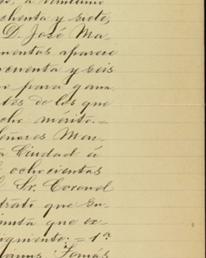 ochenta y siete,
D. José Ma
mentos aparece
noventa y seis
para gana
tés de los que
cho merito. =
eñores Mon
a Ciudad á
ochocientas
Sr. Coronel
trato que En
inuta que ex
gmento: = 1ª
Tomas